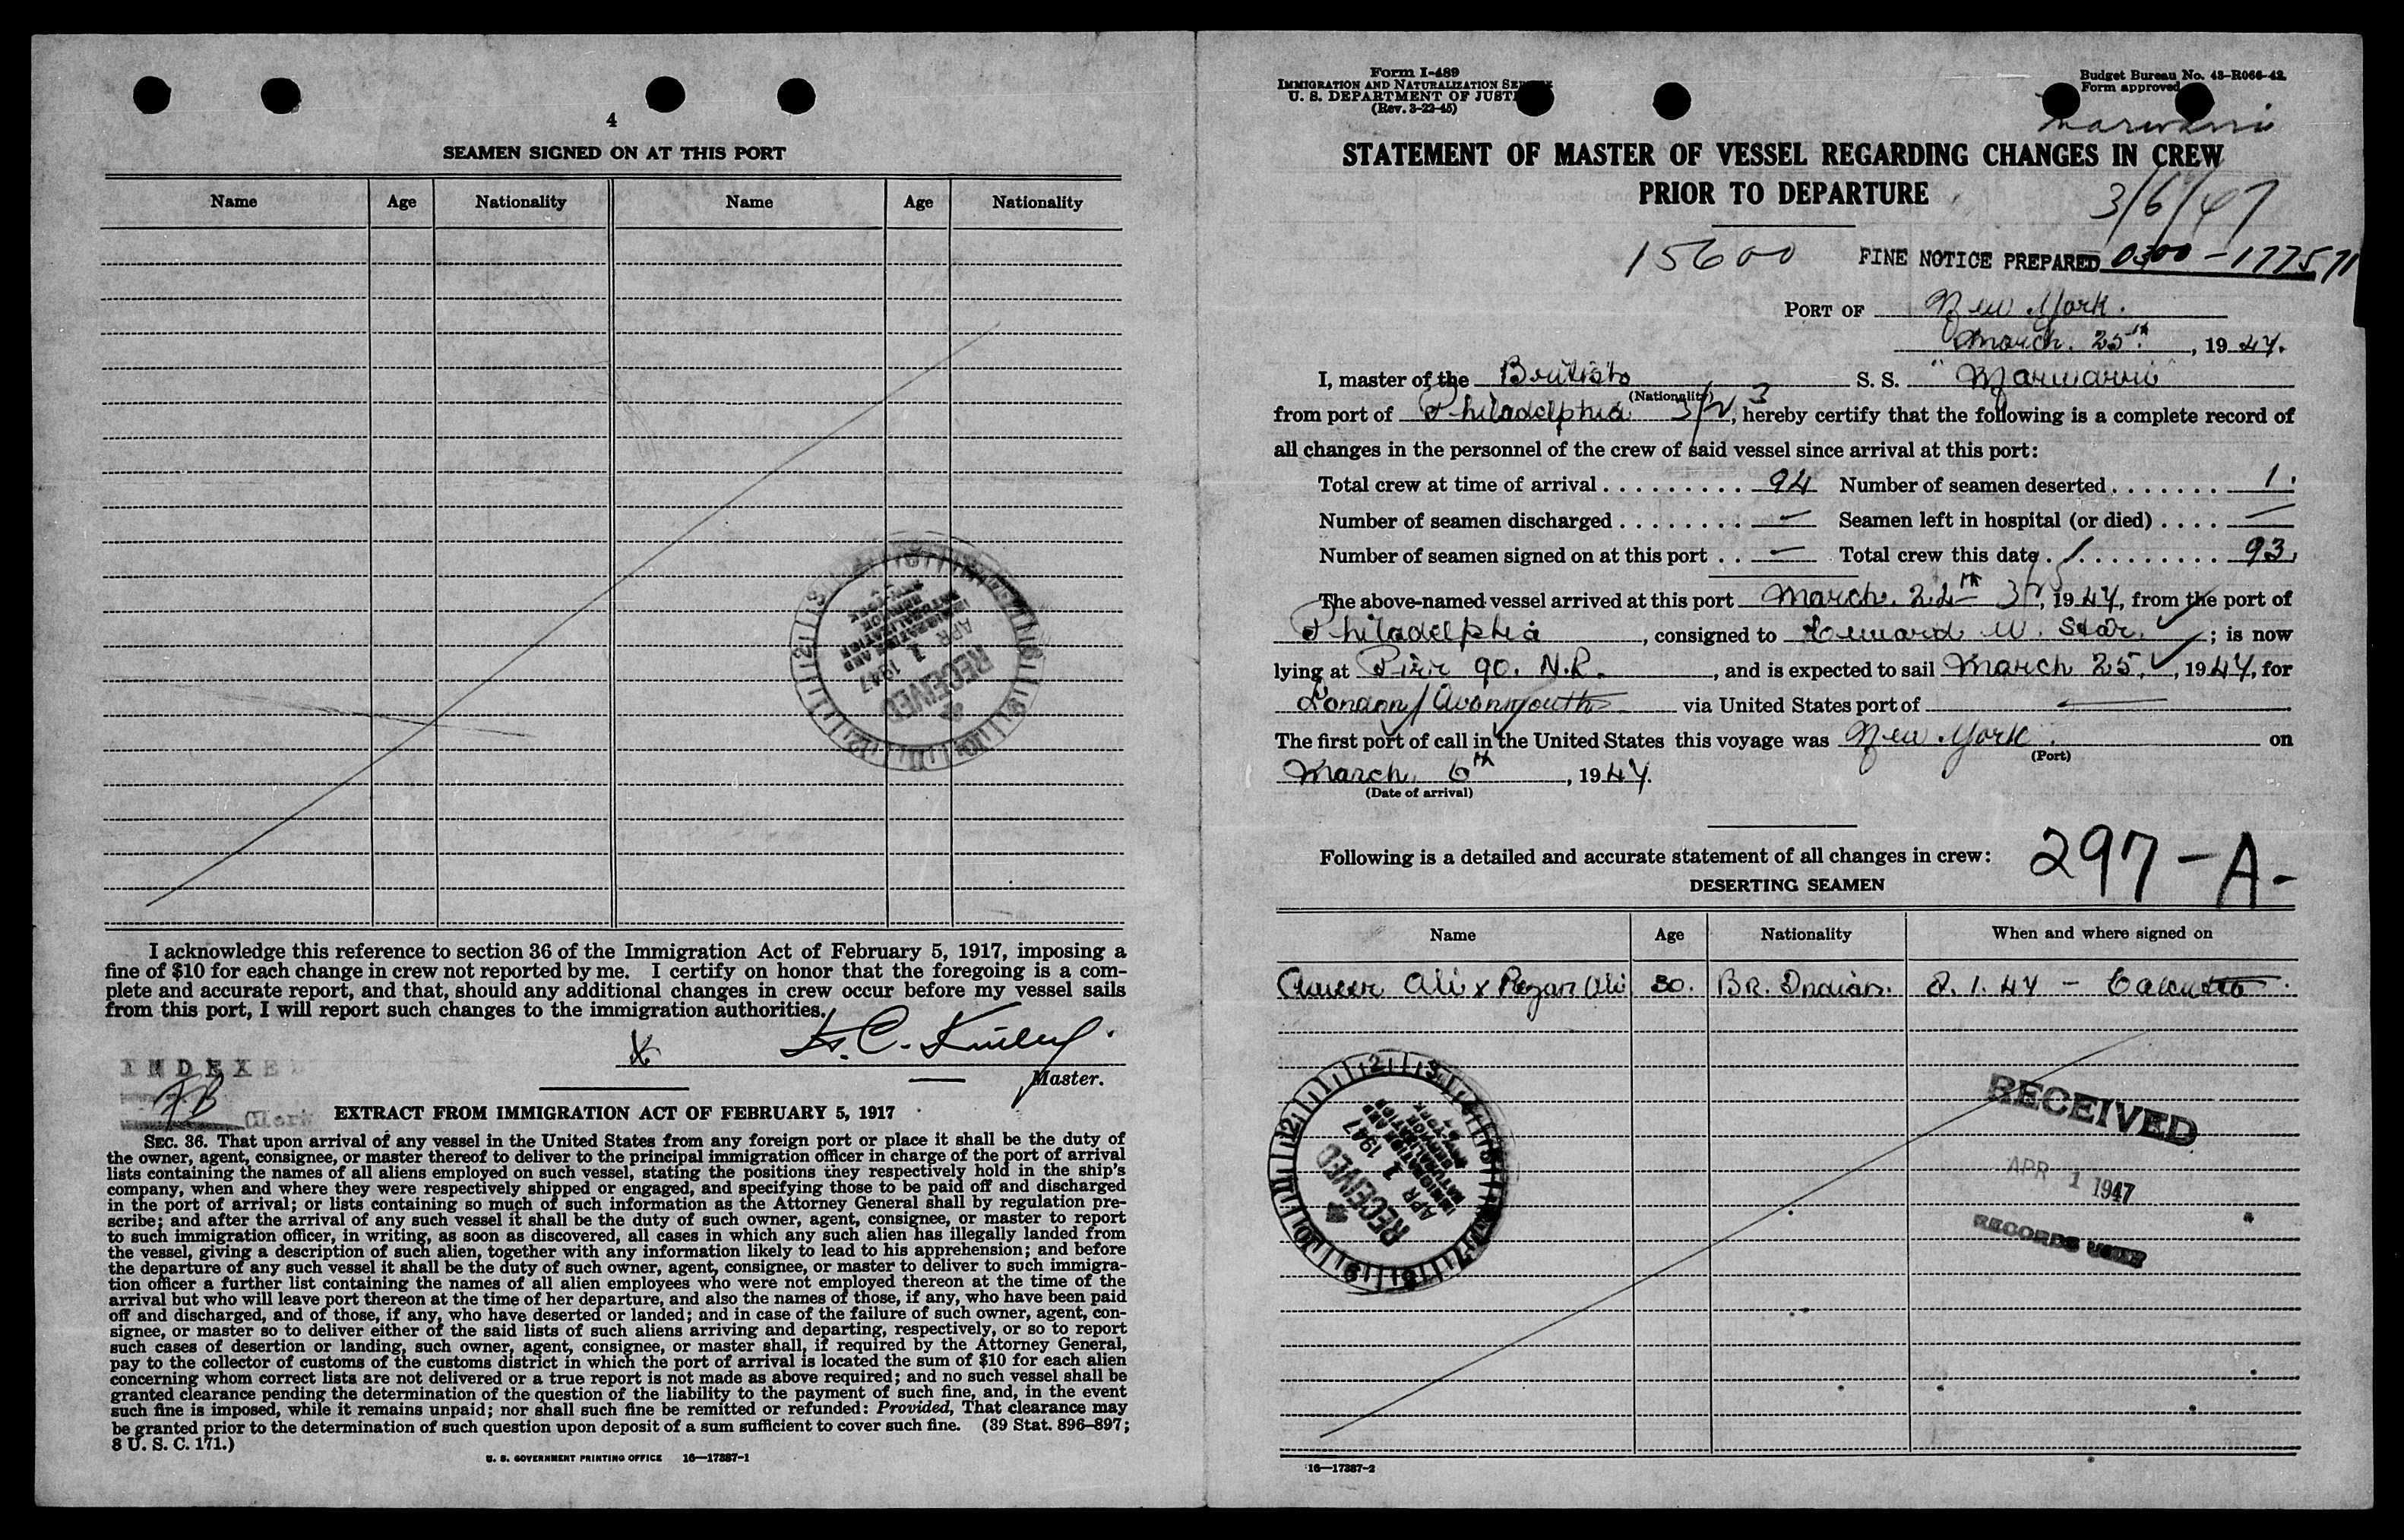 4
SEAMEN SIGNED ON AT THIS PORT
Name Age Nationality Name Age Nationality
RECEIVED
APR 1 1947
IMMIGRATION AND
NATURALIZATION
SERVICE
I acknowledge this reference to section 36 of the Immigration Act of February 5, 1917, imposing a
fine of $10 for each change in crew not reported by me. I certify on honor that the foregoing is a com-
plete and accurate report, and that, should any additional changes in crew occur before my vessel sails
from this port, I will report such changes to the immigration authorities.
X
Master.
INDEXED
FB
Clerk
EXTRACT FROM IMMIGRATION ACT OF FEBRUARY 5, 1917
SEC. 36. That upon arrival of any vessel in the United States from any foreign port or place it shall be the duty of
the owner, agent, consignee, or master thereof to deliver to the principal immigration officer in charge of the port of arrival
lists containing the names of all aliens employed on such vessel, stating the positions they respectively hold in the ship's
company, when and where they were respectively shipped or engaged, and specifying those to be paid off and discharged
in the port of arrival; or lists containing so much of such information as the Attorney General shall by regulation pre-
scribe; and after the arrival of any such vessel it shall be the duty of such owner, agent, consignee, or master to report
to such immigration officer, in writing, as soon as discovered, all cases in which any such alien has illegally landed from
the vessel, giving a description of such alien, together with any information likely to lead to his apprehension; and before
the departure of any such vessel it shall be the duty of such owner, agent, consignee, or master to deliver to such immigra-
tion officer a further list containing the names of all alien employees who were not employed thereon at the time of the
arrival but who will leave port thereon at the time of her departure, and also the names of those, if any, who have been paid
off and discharged, and of those, if any, who have deserted or landed; and in case of the failure of such owner, agent, con-
signee, or master so to deliver either of the said lists of such aliens arriving and departing, respectively, or so to report
such cases of desertion or landing, such owner, agent, consignee, or master shall, if required by the Attorney General,
pay to the collector of customs of the customs district in which the port of arrival is located the sum of $10 for each alien
concerning whom correct lists are not delivered or a true report is not made as above required; and no such vessel shall be
granted clearance pending the determination of the question of the liability to the payment of such fine, and, in the event
such fine is imposed, while it remains unpaid; nor shall such fine be remitted or refunded: Provided, That clearance may
be granted prior to the determination of such question upon deposit of a sum sufficient to cover such fine. (39 Stat. 896-897;
8 U. S. C. 171.)
U. S. GOVERNMENT PRINTING OFFICE 16—17387-1
Form I-489
IMMIGRATION AND NATURALIZATION SE
U. S. DEPARTMENT OF JUST
(Rev. 3-22-45)
Budget Bureau No. 43-R066-42.
Form approved
Marwarri
STATEMENT OF MASTER OF VESSEL REGARDING CHANGES IN CREW
PRIOR TO DEPARTURE
3/6/47
15600 FINE NOTICE PREPARED 0300-177571
PORT OF New York.
March. 25th, 1947.
I, master of the British S. S. "Marwarri"
(Nationality)
from port of Philadelphia 3/23, hereby certify that the following is a complete record of
all changes in the personnel of the crew of said vessel since arrival at this port:
Total crew at time of arrival 94 Number of seamen deserted 1.
Number of seamen discharged — Seamen left in hospital (or died) —
Number of seamen signed on at this port — Total crew this date 93.
The above-named vessel arrived at this port March. , 1947, from the port of
Philadelphia, consigned to W. Star. ; is now
lying at Pier 90. N.R., and is expected to sail March 25., 1947, for
London/Avonmouth via United States port of —
The first port of call in the United States this voyage was New York. on
(Port)
March 6th, 1947.
(Date of arrival)
Following is a detailed and accurate statement of all changes in crew: 297-A-
DESERTING SEAMEN
Name Age Nationality When and where signed on
Ali x Ali 30. BR. Indian. 1. 47 - Calcutta.
RECEIVED
APR 1 1947
IMMIGRATION AND
NATURALIZATION
SERVICE
RECEIVED
APR 1 1947
RECORDS UNIT
16—17387-2